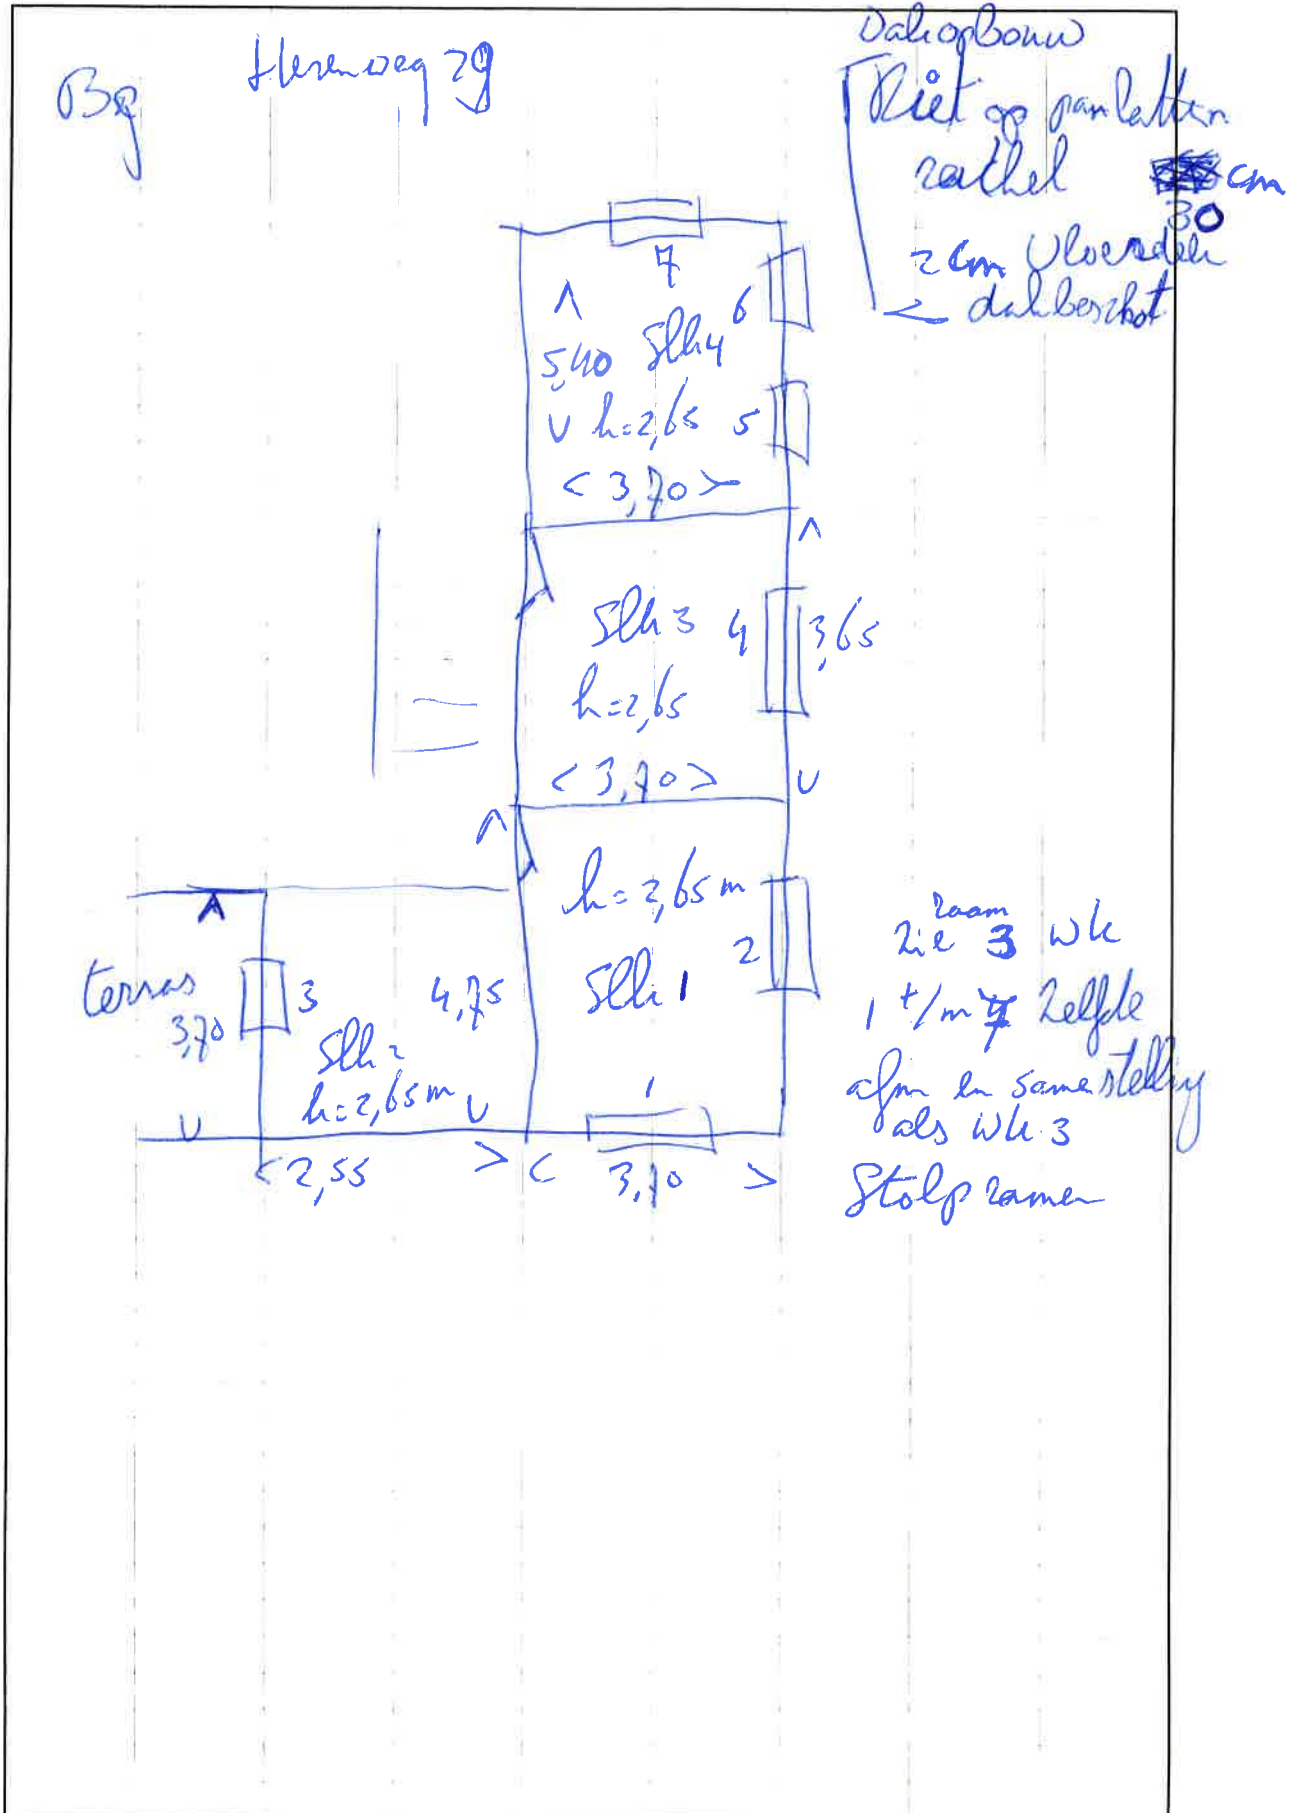 Bg
Herenweg 29
Dakopbouw
Riet op panlatten
rachel cm
30
2 cm Vloerdelen
dakbeschot
7
6
5,40 Slk4
h=2,65 5
< 3,70 >
Slk 3 4 3,65
h=2,65
< 3,70 >
h= 2,65 m
Slk 1 2
terras
3,70
3
4,75
Slk 2
h=2,65m
1
< 2,55 > < 3,70 >
raam
Zie 3 wk
1 t/m 7 Zelfde
afm en samenstelling
als wk 3
Stolpramen